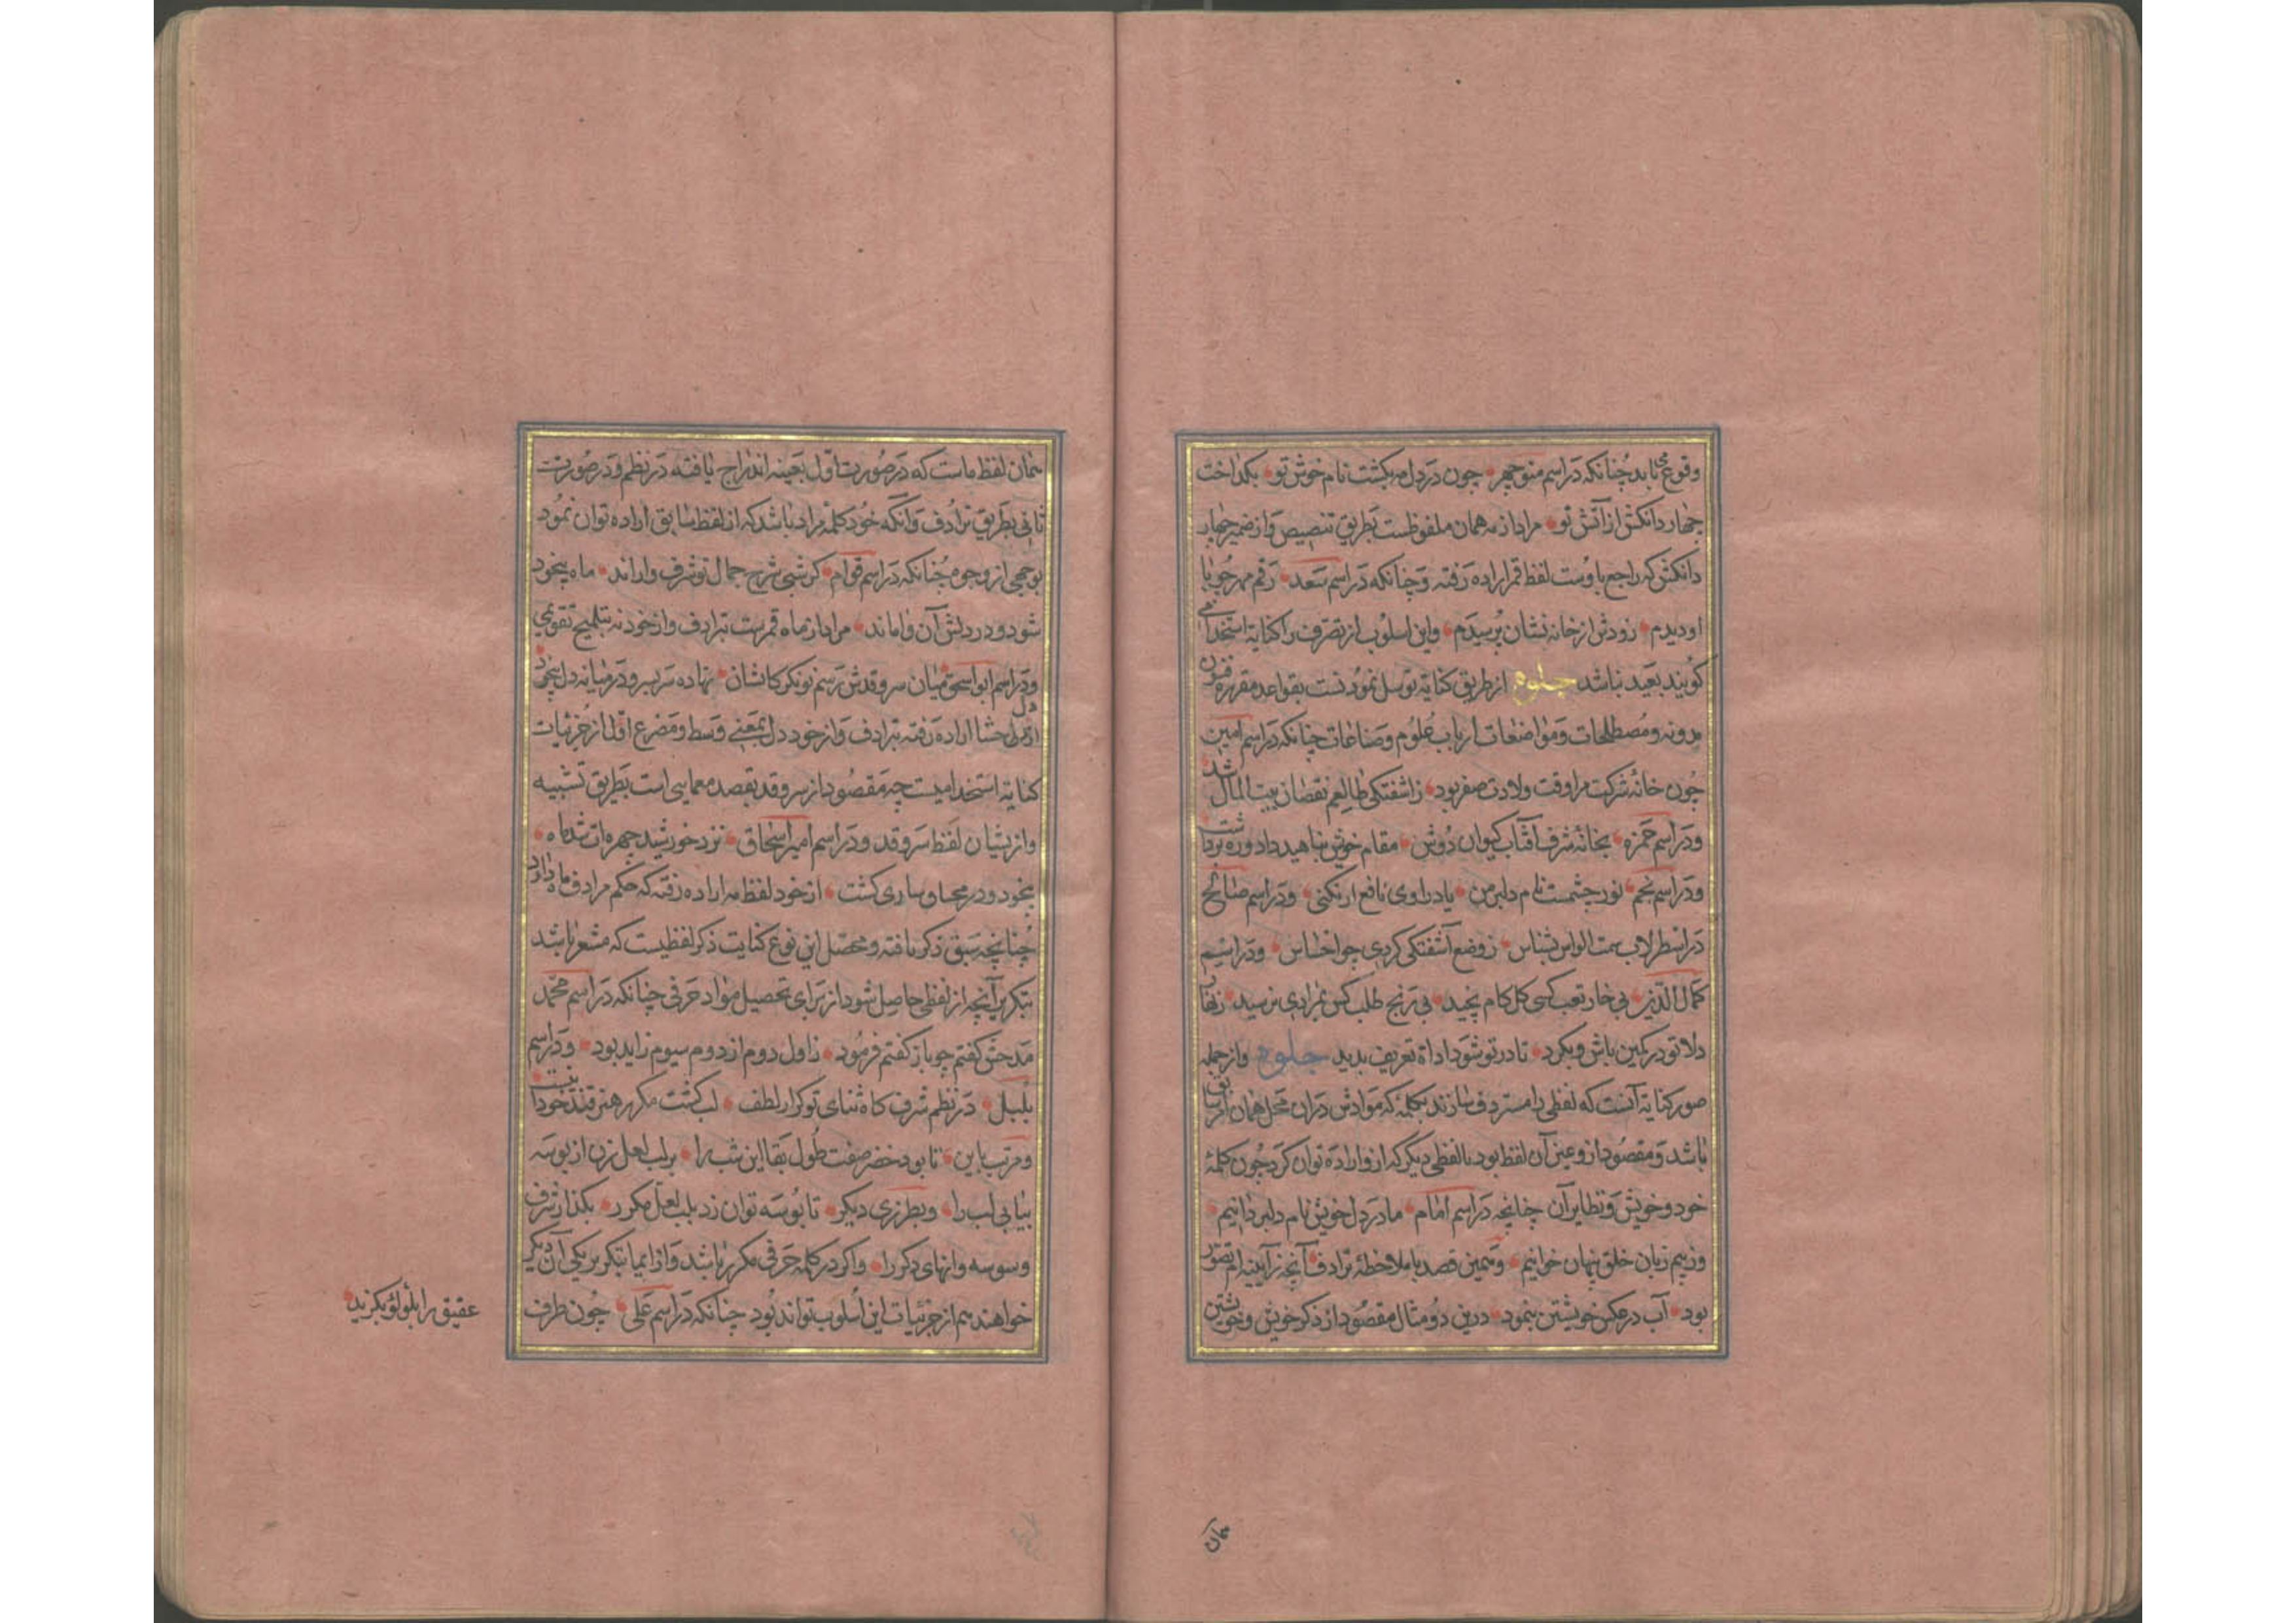 وقوع می یابد چنانکه در اسم منوچهر چون در دل مه بکشت نام خوش تو بکداخت
چهار دانکش از آتش تو مراد از مه همان ملفوظست بطریق تنصیص و از ضمیر چهار
دانکش که راجع باوست لفظ قمر اراده رفته و چنانکه در اسم سعد رقم مهر چو با
او دیدم زودش از خانه نشان پرسیدم و این اسلوب از تصرف را کنایهٔ استخدامی
کویند بعید نباشد جلوه از طریق کنایه توسل نمودنست بقواعد مقررهٔ فنون
مدونه و مصطلحات و مواضعات ارباب علوم و صناعات چنانکه در اسم امین
چون خانهٔ شرکت مرا وقت ولادت صفر بود زاشفتکی طالعم نقصان بیت المال شد
و در اسم حمزه بخانهٔ شرف آفتاب کیوان دوش مقام خویش بناهید داد و ره برداشت
و در اسم نجم نور چشمست نام دلبر من یاد راوی نافع ار نکنی و در اسم صالح
در اسطرلاب سمت الراس بشناس ز وضع آشفتکی کردی چو احساس و در اسم
کمال الدین بی خار تعب کسی کل کام نچید بی رنج طلب کس بمرادی نرسید
دلا تو در کمین باش و بکرد تا در تو شود اداة تعریف بدید جلوه و از جمله
صور کنایه آنست که لفظی را مستردف سازند بکلمهٔ که موادش در آن محل همان لفظ سابق
باشد و مقصود ازو عین آن لفظ بود یا لفظی دیکر که ازو اراده توان کرد چون کلمهٔ
خود و خویش و نظایر آن چنانچه در اسم امام ما در دل خویش نام دلبر دانیم
وز بیم زبان خلق پنهان خوانیم و همین قصد با ملاحظهٔ ترادف آنچه ز آیینه ام تصور
بود آب در عکس خویشتن بنمود درین دو مثال مقصود از ذکر خویش و خویشتن
همان
همان لفظ ماست که در صورت اول بعینه اندراج یافته در نظم و در صورت
ثانی بطریق ترادف و آنکه خود کلمه مراد باشد که از لفظ سابق اراده توان نمود
بوجهی از وجوه چنانکه در اسم قوام کر شبی شرح جمال تو شرف واراند ماه بیخود
شود و در دلش آن واماند مراد از ماه قمرست بترادف و از خود نه بتلمیح تقویمی
و در اسم ابو اسحق میان سرو قدش رسم نو نکر کاشان نهاده سر بسر و در میانه دل بیخود
از دل حشا اراده رفته بترادف و از خود دل بمعنی وسط و مصرع اول از جزئیات
کنایهٔ استخدامیست چه مقصود از سرو قد بقصد معمایی است بطریق تشبیه
و از میان لفظ سرو قد و در اسم امیر اسحاق نزد خورشید چهره ات شد ماه
بیخود و در محاق ساری کشت از خود لفظ مه اراده رفته که حکم مرادف ماه دارد
چنانچه سبق ذکر یافته و محصل این نوع کنایت ذکر لفظیست که مشعر باشد
بتکریر آنچه از لفظی حاصل شود از برای تحصیل مواد حرفی چنانکه در اسم محمد
مدحش کفتم چو باز کفتم فرمود ز اول دوم از دوم سیوم زاید بود و در اسم
بلبل در نظم شرف کاه ثنای تو کرار لطف لب کشت مکرر هنر قند خود آنست
و مرتب باین تا بود خضر صفت طول بقا این شب را بر لب لعل زن از بوسه
بیابی لب را و بطرزی دیکر تا بوسه توان زد بلب لعل مکرر بکذار شرف
وسوسه وانهای دکر را و اکر در کلمه حرفی مکرر باشد و از ایما بتکریر یکی آن دیکر
خواهند هم از جزئیات این اسلوب تواند بود چنانکه در اسم علی چون طرف
عقیق را بلولو بکزید